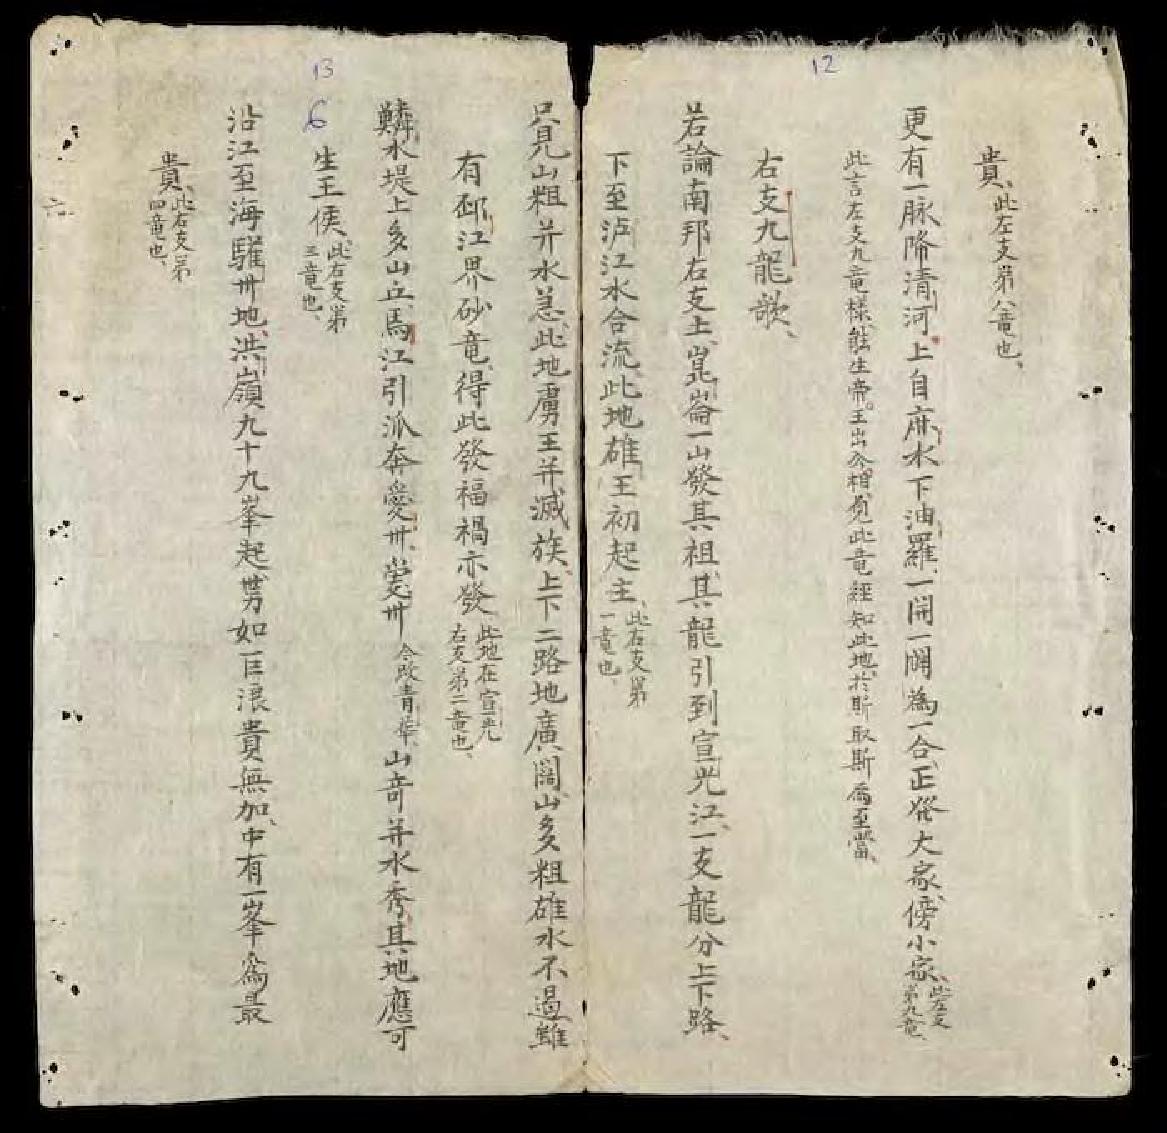 12
貴、此左支第八竜也、
更有一脉降清河上自麻水下油羅、一開一闢為一合、正發大家傍小家、此左支第九竜、
此言左支九竜様、能生帝王出公相、覓此竜經知此地、於斯取斯為至當、
右支九龍歌、
若論南邦右支土、崑崙一山發其祖、其龍引到宣光江、一支龍分上下路、
下至泸江水合流、此地雄王初起主、此右支第一竜也、
只見山粗并水急、此地虜王并滅族、上下二路地廣闊、山多粗雄水不過、雖
有邳江界砂竜、得此發福禍亦發、此地在宣光右支第二竜也、
13
6
鱗水堤上多山丘、馬江引派奔愛州、愛州今改青華、山奇并水秀、其地應可
生王侯、此右支第三竜也、
沿江至海驩州地、洪嶺九十九峯起、勢如巨浪貴無加、中有一峯為最
貴、此右支第四竜也、